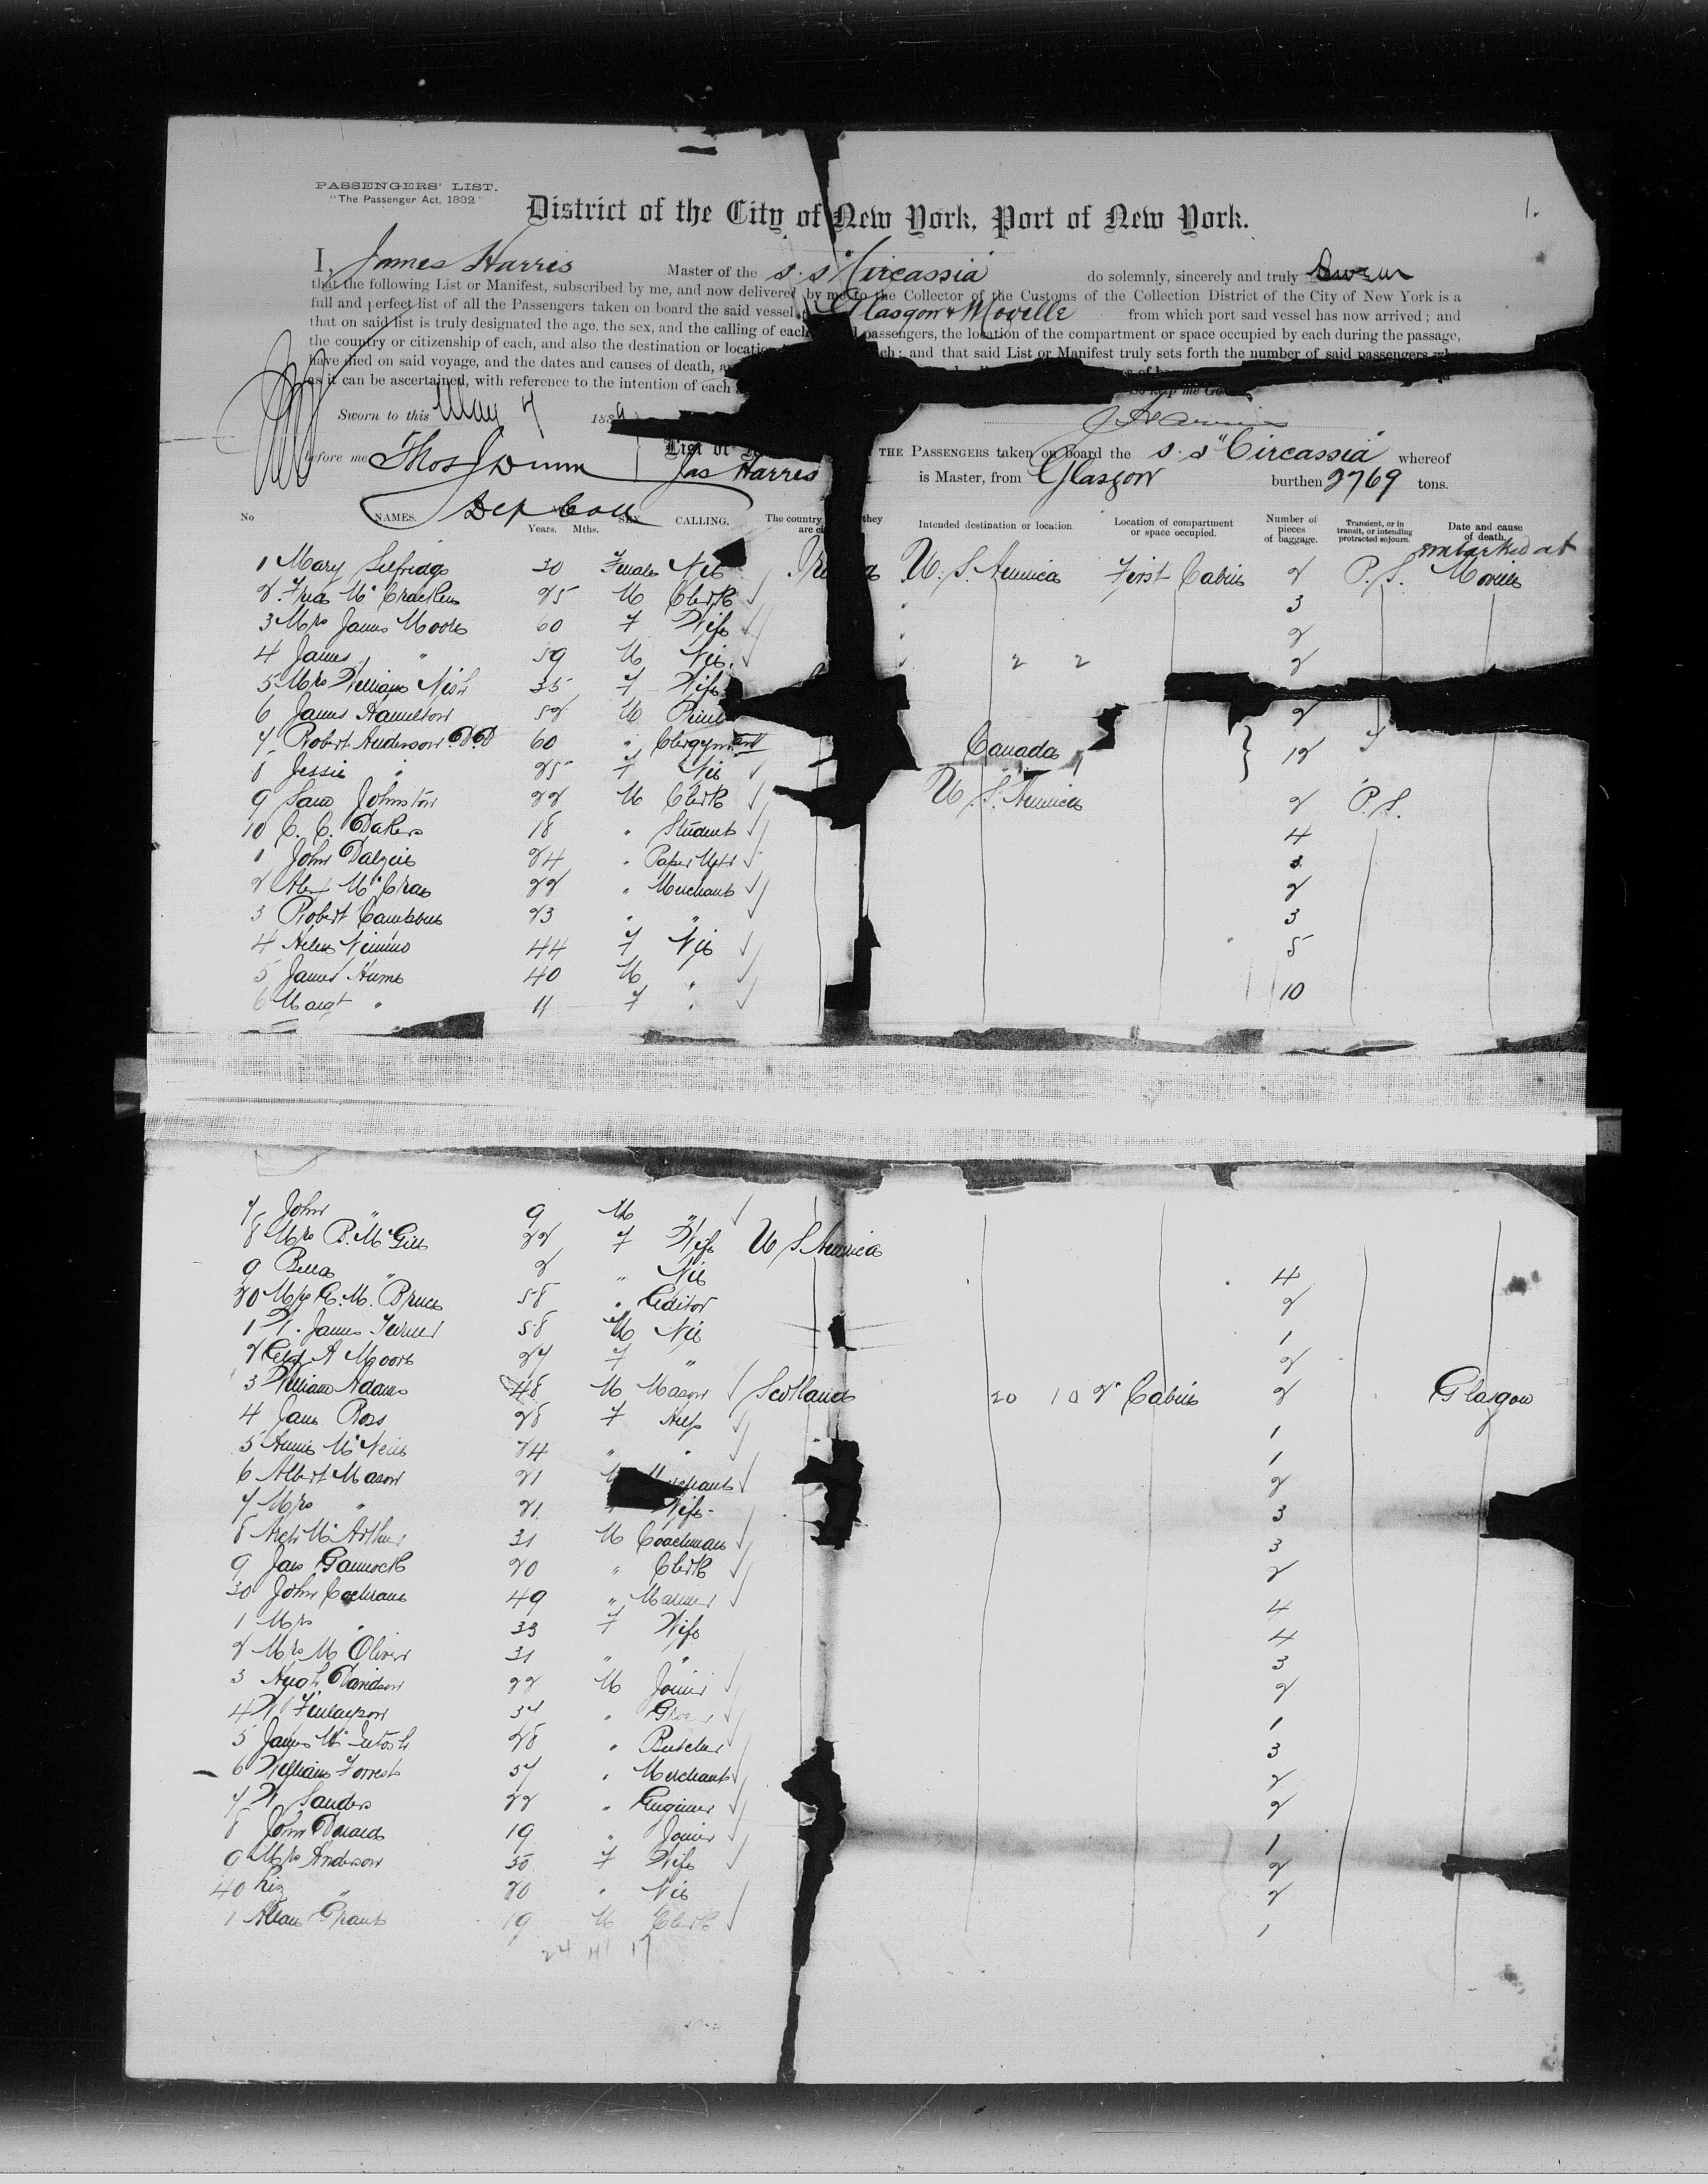 PASSENGERS' LIST.
"The Passenger Act, 1882"
District of the City of New York, Port of New York.
1.
I, James Harris Master of the S.S. Circassia do solemnly, sincerely and truly Swear
that the following List or Manifest, subscribed by me, and now delivered by me to the Collector of the Customs of the Collection District of the City of New York is a
full and perfect list of all the Passengers taken on board the said vessel Glasgow & Moville from which port said vessel has now arrived; and
that on said list is truly designated the age, the sex, and the calling of each passengers, the location of the compartment or space occupied by each during the passage,
the country or citizenship of each, and also the destination or location ch; and that said List or Manifest truly sets forth the number of said passengers
have died on said voyage, and the dates and causes of death,
as it can be ascertained, with reference to the intention of each
So help me God
Sworn to this May 7 188
J Harris
before me Thos J Dunn
Dep Coll
List of THE PASSENGERS taken on board the S.S "Circassia" whereof
Jas Harris is Master, from Glasgow burthen 2769 tons.
No NAMES. Years. Mths. SEX. CALLING. The country they are Intended destination or location. Location of compartment or space occupied. Number of pieces of baggage. Transient, or in transit, or intending protracted sojourn. Date and cause of death.
embarked at
1 Mary Selfridge 30 Female Nil U.S. America First Cabin 2 P.S. Moville
2 Fred McCracken 25 M Clerk 3
3 Mrs James Moore 60 F Wife 2
4 James " 59 M Nil 2
5 Mrs William Nish 35 F Wife
6 James Hamilton 52 M 2
7 Robert Anderson D.D 60 " Clergyman Canada 12
8 Jessie " 25 F Nil
9 Sam Johnston 22 M Clerk U.S. America 2 P.S.
10 C. C. Dakers 18 " Student 4
1 John Dalziel 24 " Paper 3
2 Alex 22 " Merchant 2
3 Robert 23 " " 3
4 Helen Nimmo 44 F Nil 5
5 James Hume 40 M "
6 Margt " 11 F " 10
7 John " 9 M "
8 Mrs R. McGill 22 F Wife U S America
9 Bella " 2 " Nil 4
20 G. M. Bruce 58 " Editor 2
1 W. James Turner 58 M Nil 1
2 A Moore 27 F " 2
3 William Adams 48 M Mason Scotland 20 10 2 Cabin 2 Glasgow
4 Jane Ross 28 F 1
5 Annie McNeil 24 " " 1
6 Albert Mason 21 M Merchant 2
7 Mrs " 21 F Wife 3
8 McArthur 31 M Coachman 3
9 Jas 20 " Clerk 2
30 John Cochrane 49 " Mariner 4
1 Mrs " 33 F Wife 4
2 Mrs M Oliver 31 " " 3
3 Hugh Davidson 22 M Joiner 2
4 W Finlayson 37 " 1
5 James McIntosh 28 " Butcher 3
6 William Forrest 57 " Merchant 2
7 W Sanders 22 " Engineer 2
8 John Donald 19 " Joiner 1
9 Mrs Anderson 50 F Wife 2
40 Liz " 20 " Nil 2
1 Allan Grant 19 M Clerk 1
24 41 17